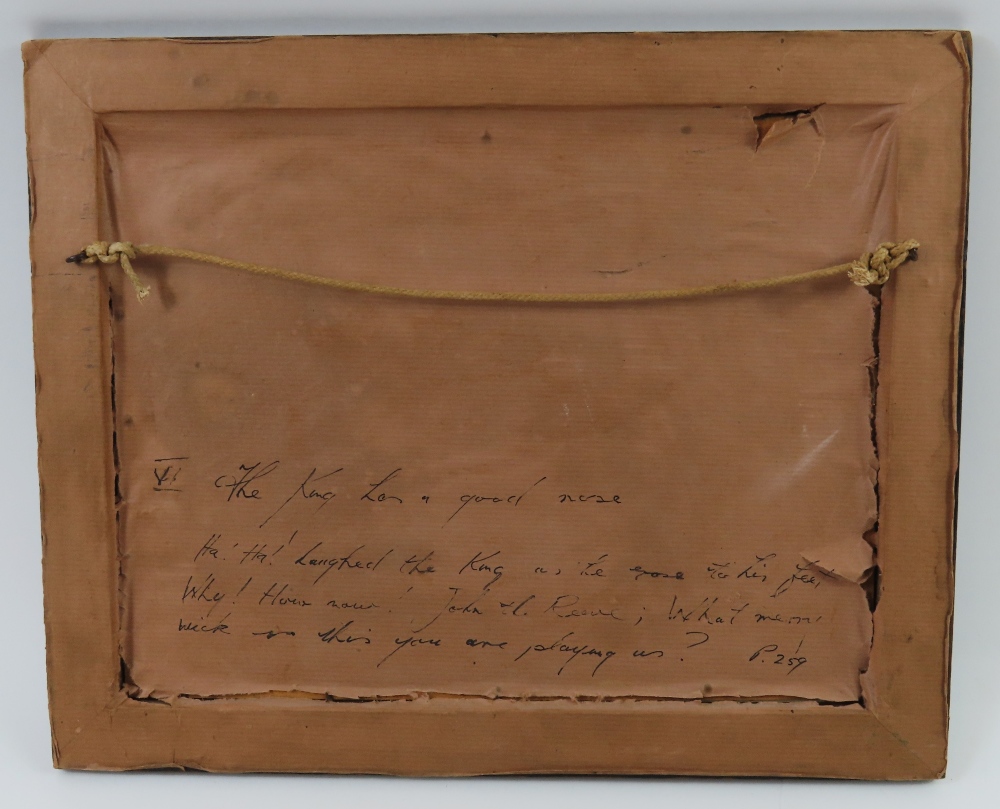 VI The King has a good nose
Ha! Ha! Laughed the King as he rose to his feet
Why! How now! John th. Reeve; What
is this you are playing us? P. 259